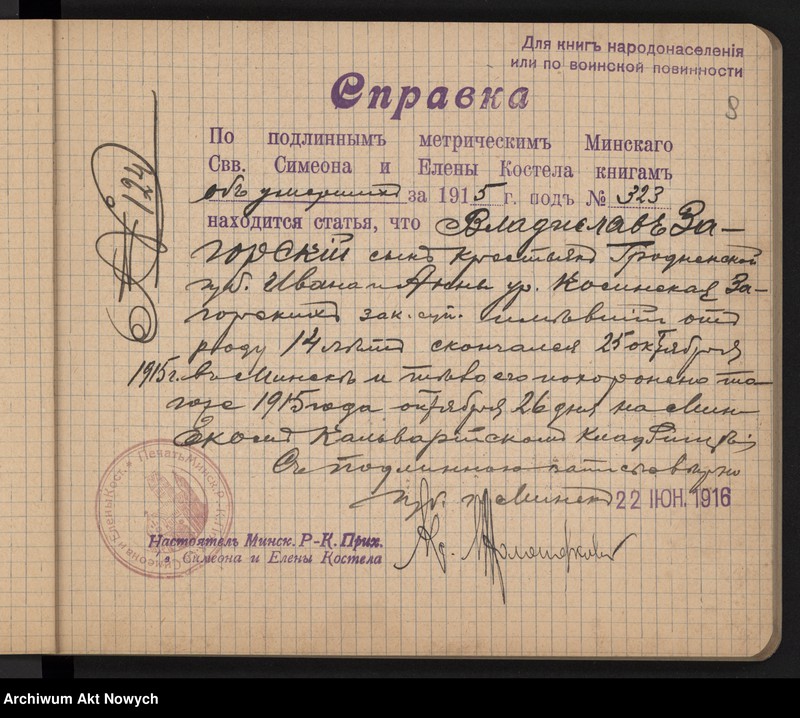 Для книгъ народонаселенія
или по воинской повинности
8
Справка
№ 124
По подлиннымъ метрическимъ Минскаго
Свв. Симеона и Елены Костела книгамъ
объ умершихъ за 1915 г. подъ № 323
находится статья, что Владиславъ За-
горскій сынъ крестьянъ Гродненской
губ. Ивана и Анны ур. Косинская За-
горскихъ зак. суп. имѣвшій отъ
роду 14 лѣтъ скончался 25 октября
1915 г. въ Минскѣ и тѣло его похоронено та-
гоже 1915 года октября 26 дня на Мин-
скомъ Кальварійскомъ кладбищѣ
Съ подлинною записью вѣрно
г. Минскъ 22 ІЮН. 1916
Настоятель Минск. Р-К. Прих.
Симеона и Елены Костела
Archiwum Akt Nowych